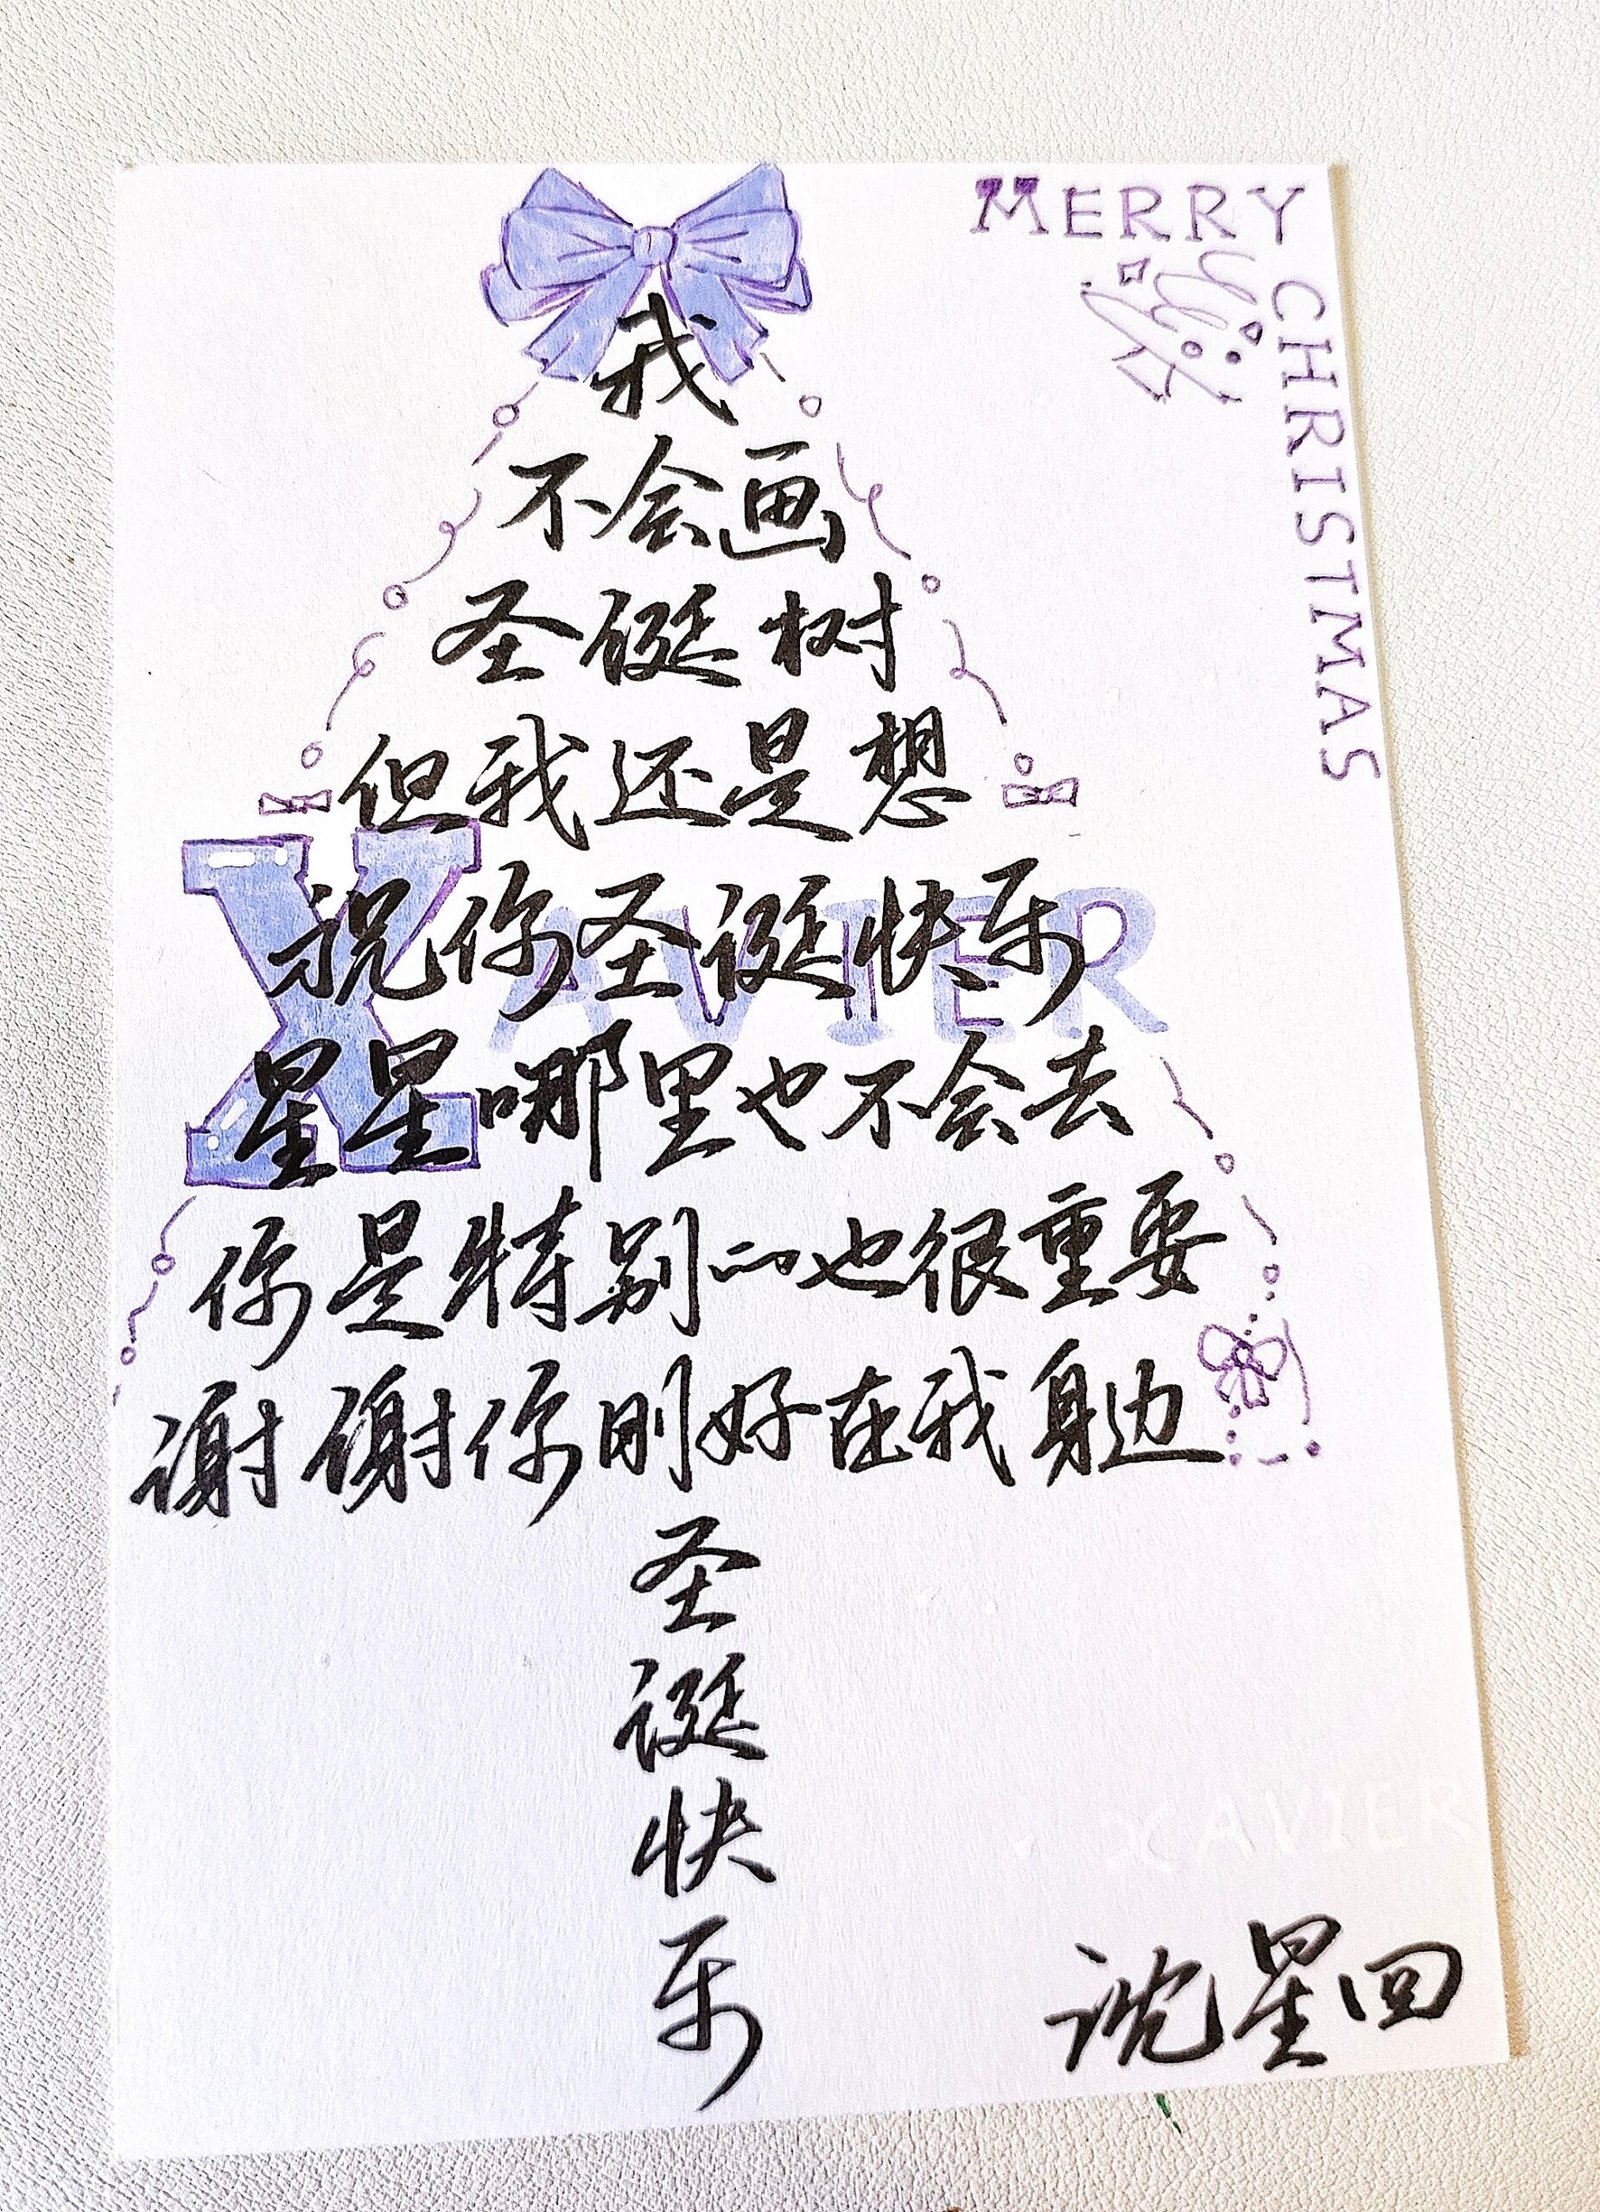 MERRY
CHRISTMAS
我
不会画
圣诞树
但我还是想
祝你圣诞快乐
XAVIER
星星哪里也不会去
你是特别的也很重要
谢谢你刚好在我身边
圣
诞
快
乐
XAVIER
沈星回